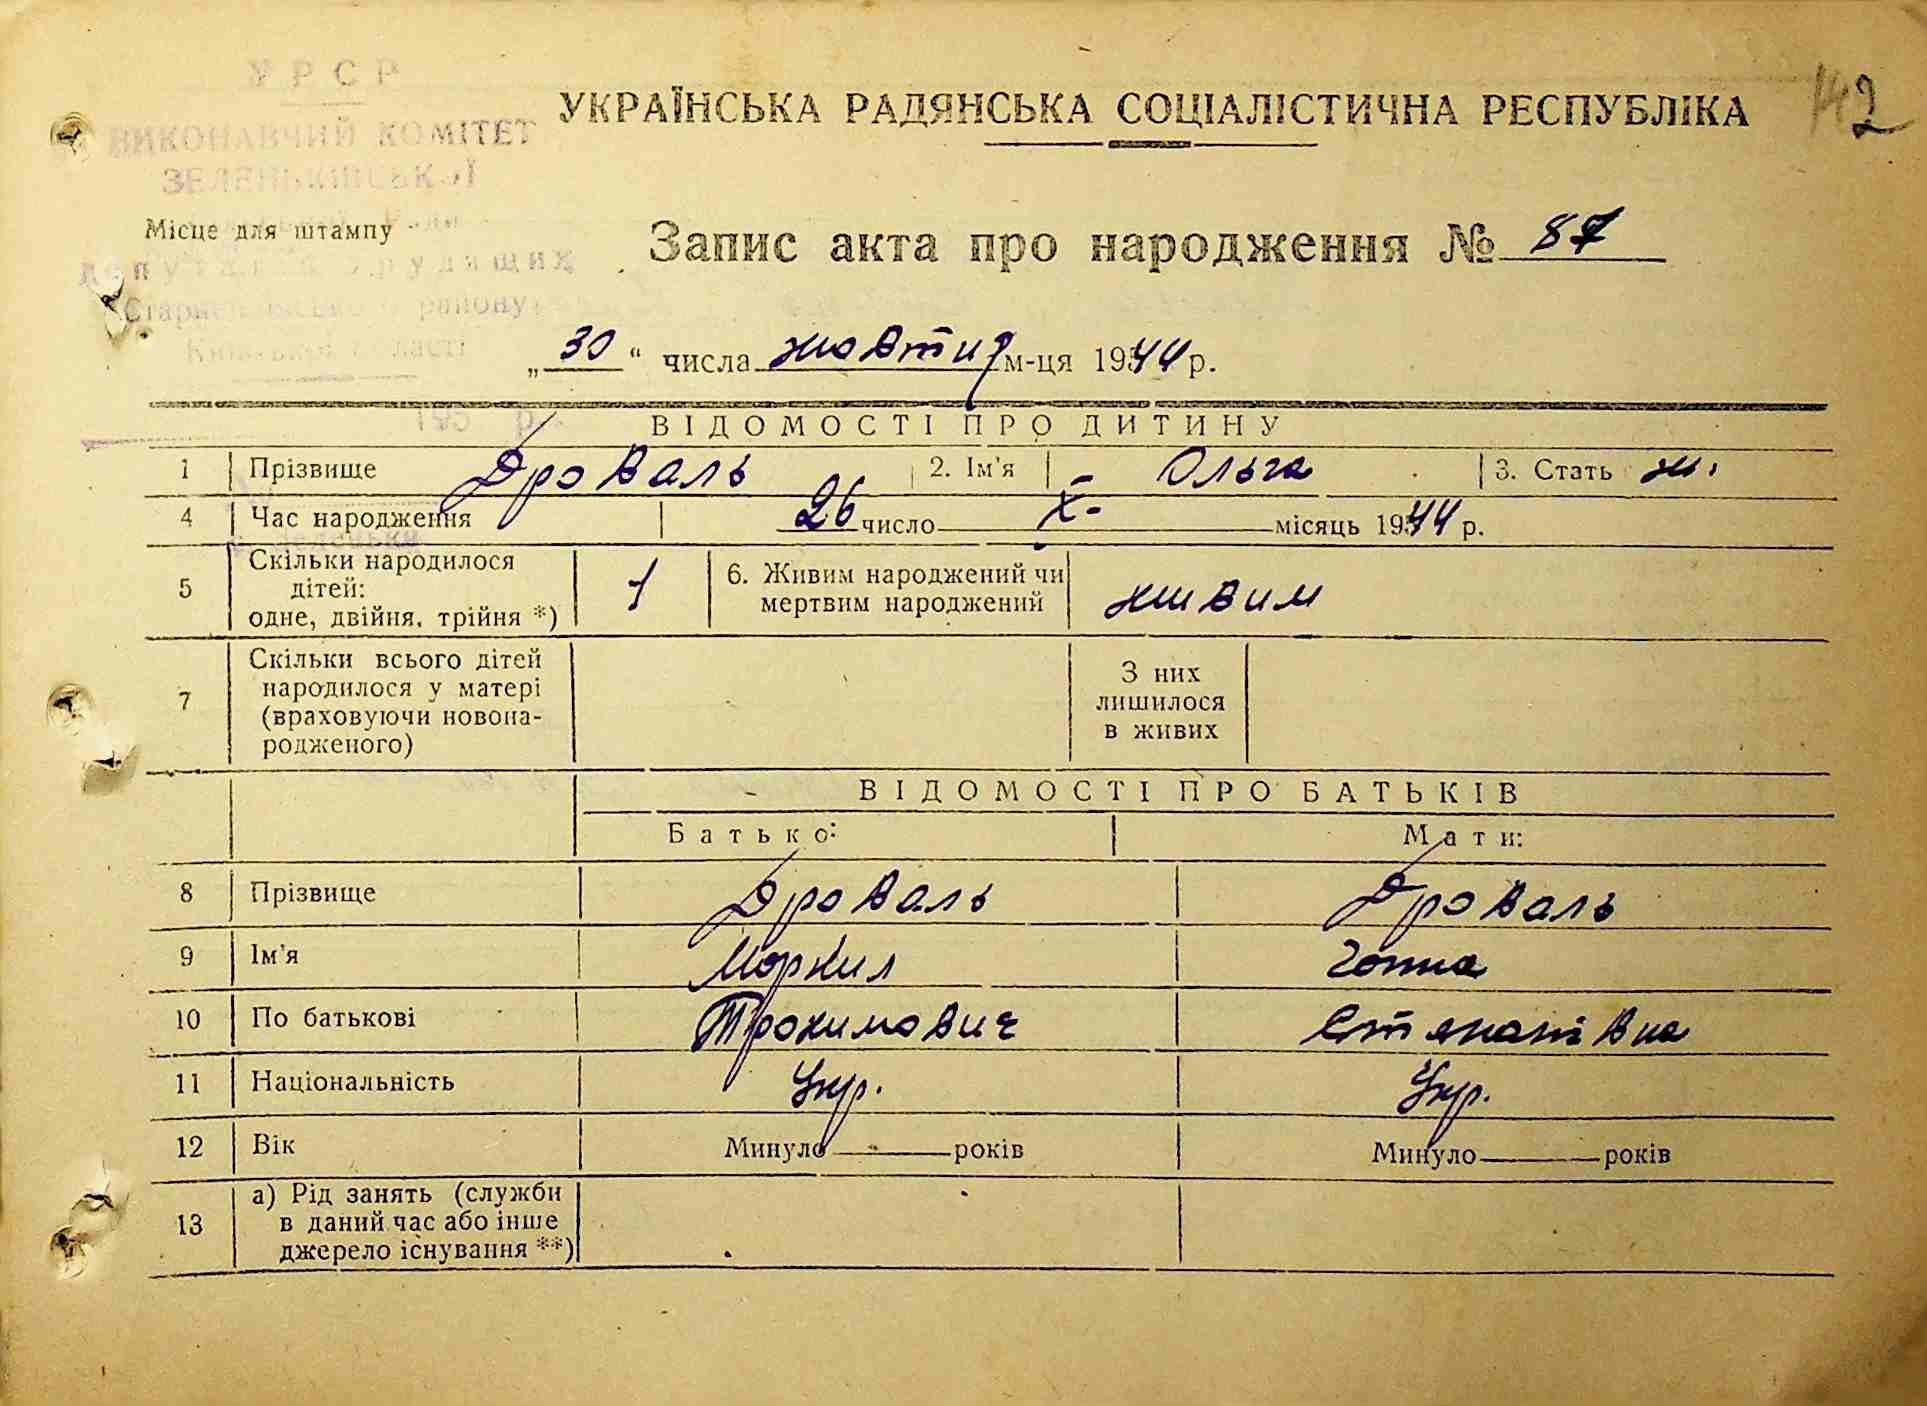 142
УРСР
ВИКОНАВЧИЙ КОМІТЕТ
ЗЕЛЕНЬКІВСЬКОЇ
району
Київської області
195 р.
с. Зеленьки
УКРАЇНСЬКА РАДЯНСЬКА СОЦІАЛІСТИЧНА РЕСПУБЛІКА
Місце для штампу
Запис акта про народження № 87
„30“ числа жовтня м-ця 1944 р.
ВІДОМОСТІ ПРО ДИТИНУ
1 Прізвище Дроваль 2. Ім'я Ольга 3. Стать ж.
4 Час народження 26 число X- місяць 1944 р.
5 Скільки народилося дітей: одне, двійня, трійня *) 1 6. Живим народжений чи мертвим народжений живим
7 Скільки всього дітей народилося у матері (враховуючи новона-родженого) З них лишилося в живих
ВІДОМОСТІ ПРО БАТЬКІВ
Батько: Мати:
8 Прізвище Дроваль Дроваль
9 Ім'я Маркил Ганна
10 По батькові Трохимович Степанівна
11 Національність Укр. Укр.
12 Вік Минуло років Минуло років
13 а) Рід занять (служби в даний час або інше джерело існування **)